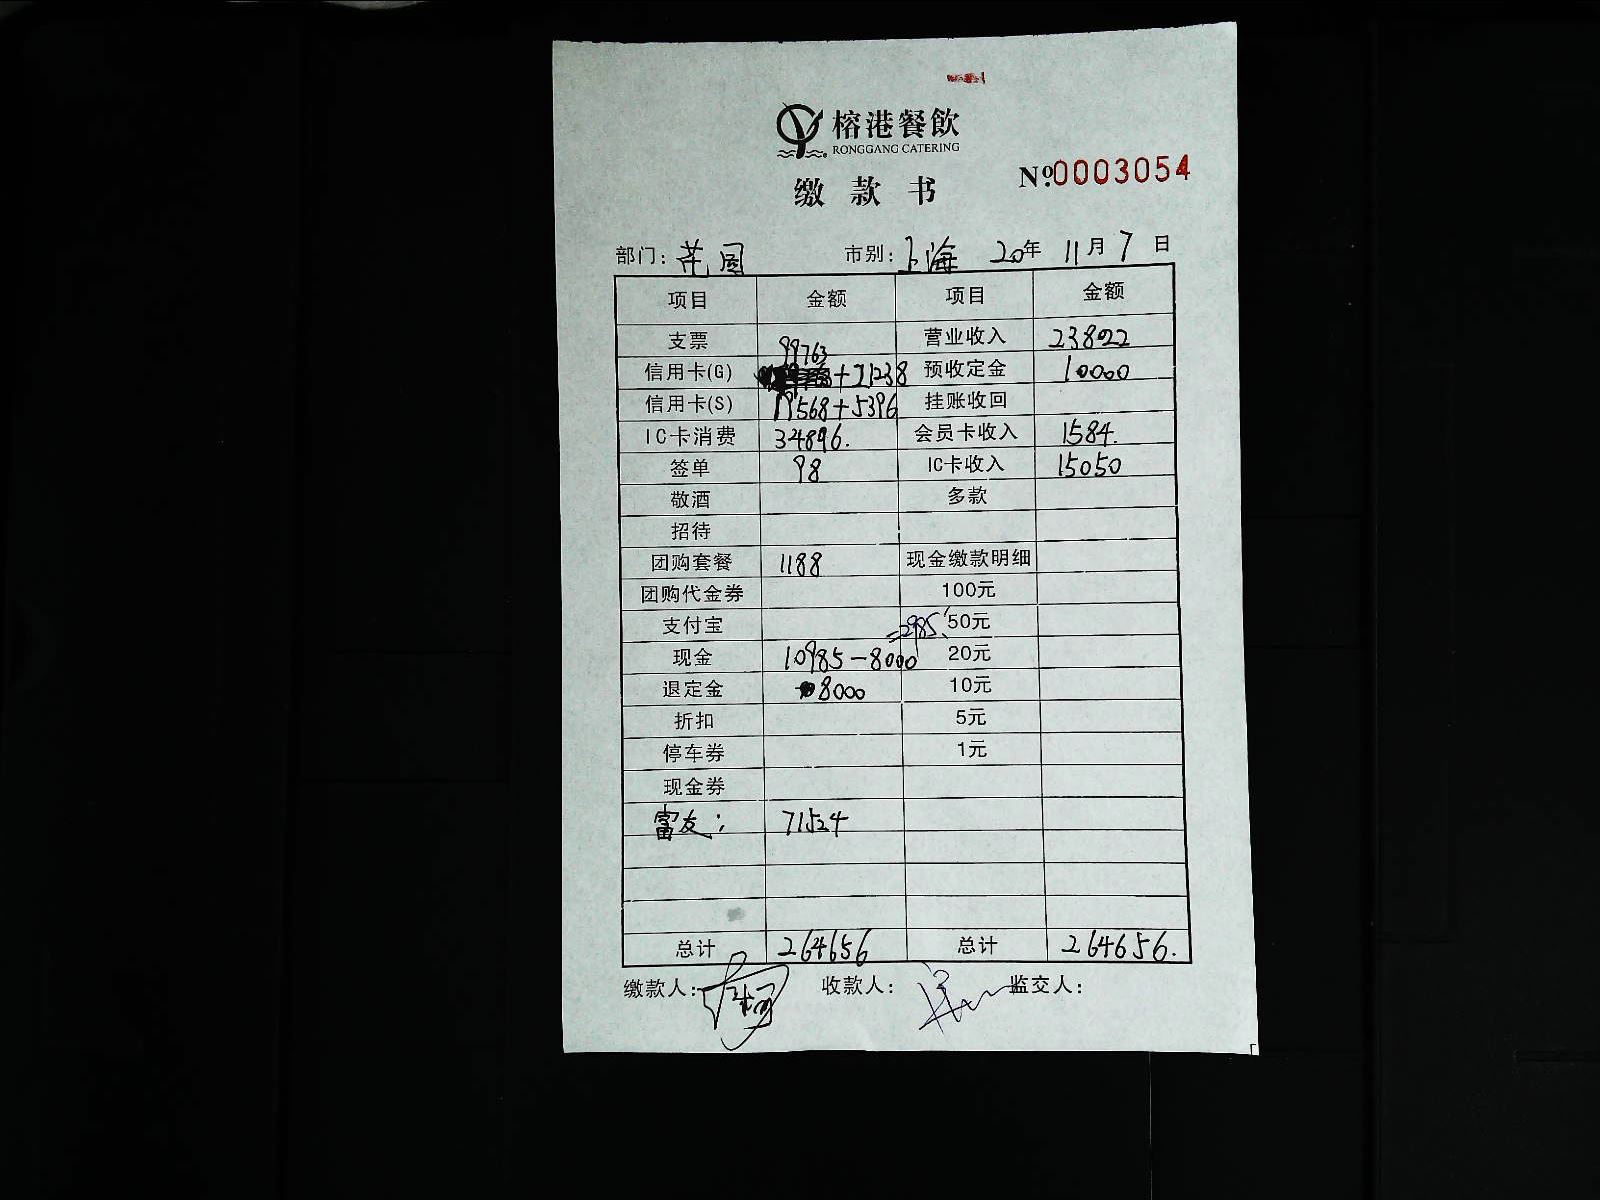 榕港餐飲
RONGGANG CATERING
缴款书 Nº.0003054
部门: 花园 市别: 上海 20年 11月 7日
项目 金额 项目 金额
支票 营业收入 238022
信用卡(G) 99763+21238 预收定金 10000
信用卡(S) 19568+5396 挂账收回
IC卡消费 34896. 会员卡收入 1584.
签单 98 IC卡收入 15050
敬酒 多款
招待
团购套餐 1188 现金缴款明细
团购代金券 100元
支付宝 50元
现金 10985-8000 =2985. 20元
退定金 8000 10元
折扣 5元
停车券 1元
现金券
富友: 71524
总计 264656 总计 264656.
缴款人: 收款人: 监交人: